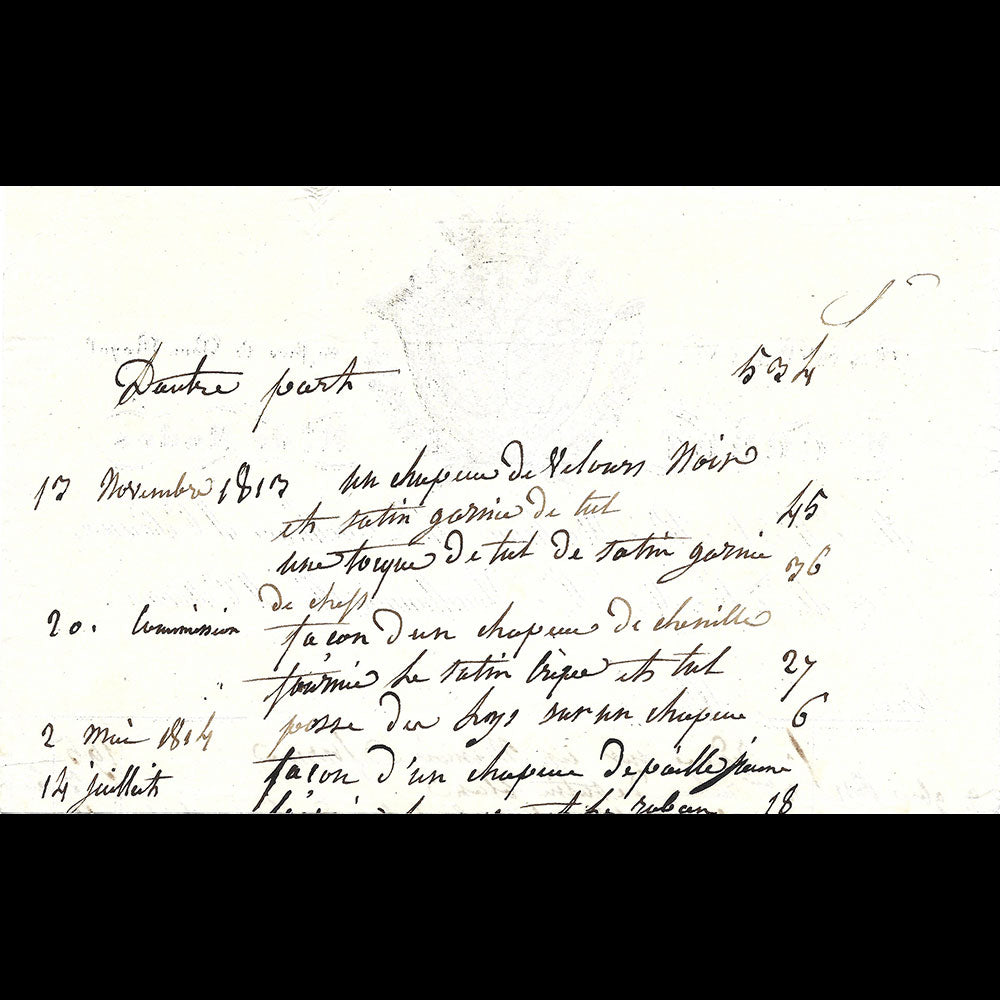 D'autre part 534
13 Novembre 1813 un chapeau de Velours Noir
et satin garnie de tul 45
une toque de tul de satin garnie 36
de chefs
20. Commission façon d'un chapeau de chenille
fournie le satin crêpe et tul 27
2 Mai 1814 posse des sur un chapeau 6
14 juillet façon d'un chapeau de paille jaune
et le ruban 18